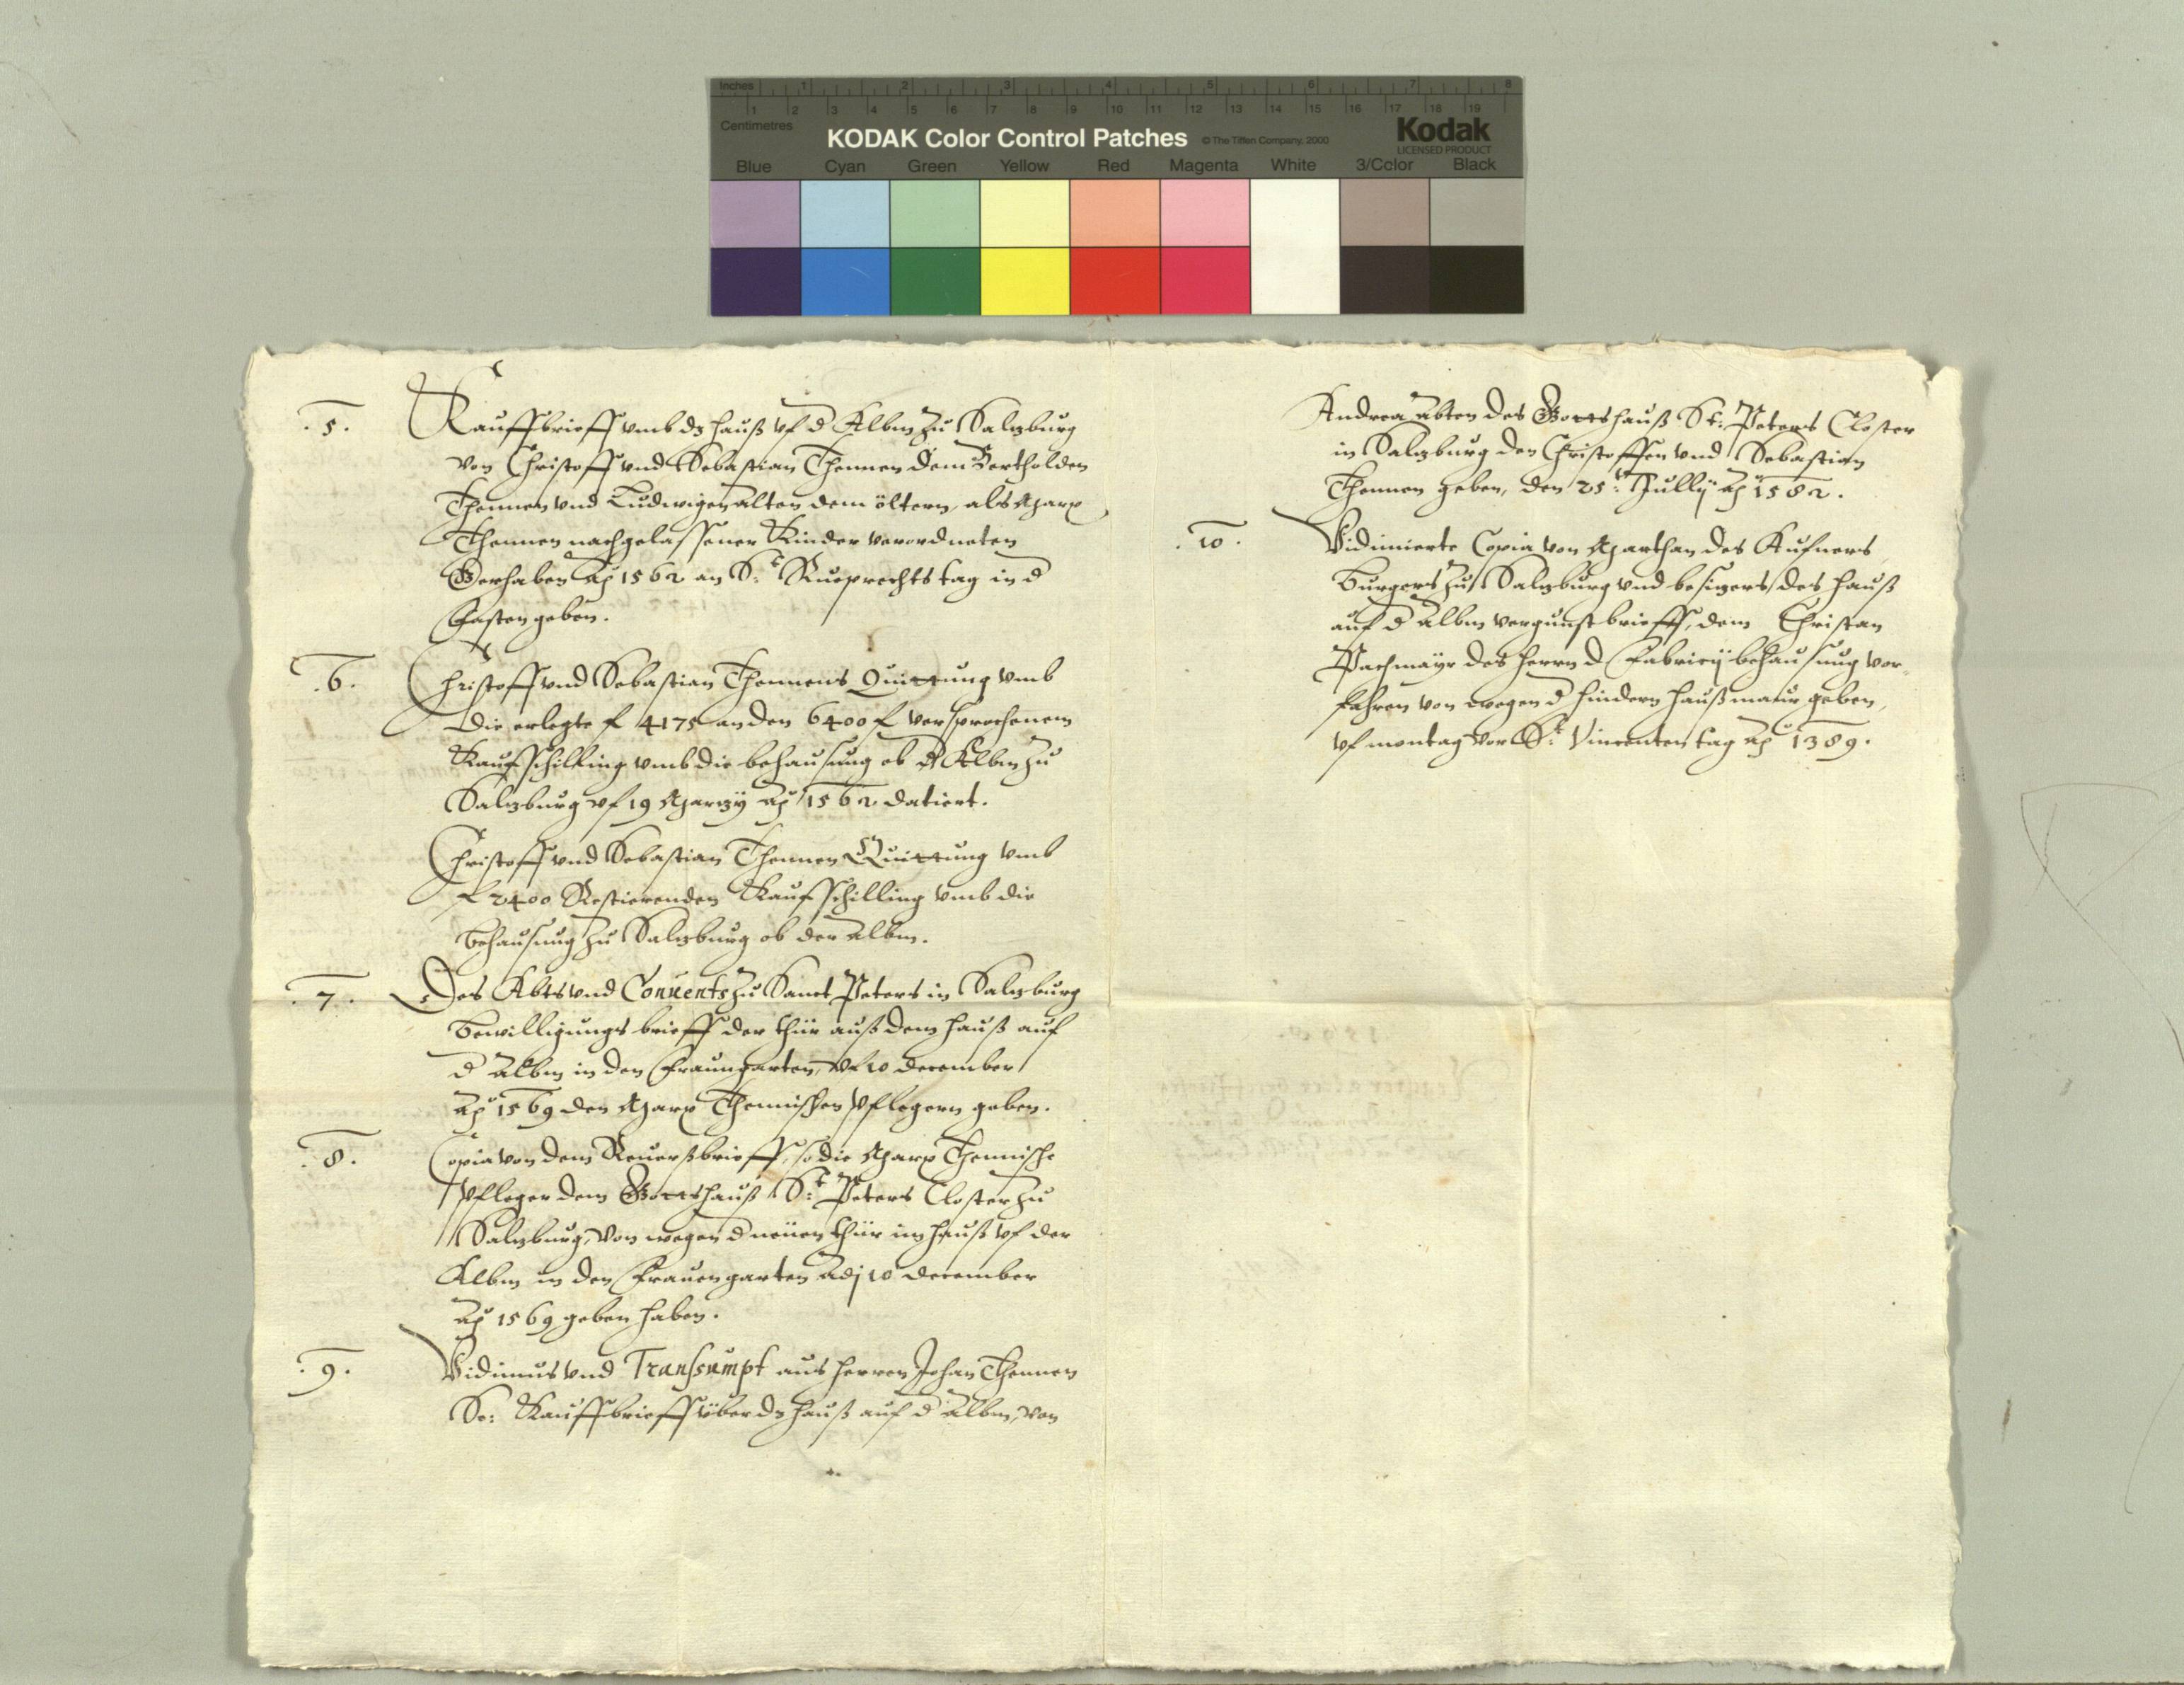 Inches 1 2 3 4 5 6 7 8
1 2 3 4 5 6 7 8 9 10 11 12 13 14 15 16 17 18 19
Centimetres
KODAK Color Control Patches © The Tiffen Company, 2000 Kodak
LICENSED PRODUCT
Blue Cyan Green Yellow Red Magenta White 3/Color Black
.5. Kauffbrieff vmb dz hauß vf d Albm zu Salzburg
von Christoff vnd Sebastian Thennen dem Bertholden
Thennen vnd Ludwigen Alten dem öltern, als Marx
Thennen nachgelassener Kinder verordneten
Gerhaben Ao 1562 an St: Rueprechts tag in d
Fasten geben.
.6. Christoff vnd Sebastian Thennens Quittung vmb
die erlegte f 4175 an den 6400 f versprochenem
Kaufschilling vmb die behausung ob d Albm zu
Salzburg vf 19 Marzÿ Ao 1562 datiert.
Christoff vnd Sebastian Thennen Quittung vmb
f 2400 Restierenden Kaufschilling vmb die
behausung zu Salzburg ob der Albm.
.7. Des Abts vnd Conuents zu Sanct Peters in Salzburg
bewilligungs brieff der thür auß dem hauß auf
d Albm in den Fraungarten, vf 10 december
Ao 1569 den Marx Thennischen Pflegern geben.
.8. Copia von dem Reuerßbrieff, so die Marx Thennische
Pfleger dem Gottshauß St: Peters Closter zu
Salzburg, von wegen d neüen thür im hauß vf der
Albm in den Frauengarten Adj 10 december
Ao 1569 geben haben.
.9. Vidimus vnd Transsumpt aus herren Johan Thennen
Se: Kauffbrieff über dz hauß auf d Albm, von
Andrea Abten des Gottshauß St: Peters Closter
in Salzburg den Christoffen vnd Sebastian
Thennen geben, den 25: Jullÿ Ao 1582.
.10. Vidimierte Copia von Marthan des Aufners
Burgers zu Salzburg vnd besizers des hauß
auf d Albm vergunstbrieff, dem Christan
Pachmayr des herrn d Fabricÿ behausung vor-
fahren von wegen d hindern haußmaur geben,
vf montag vor St: Vincenten tag Ao 1389.